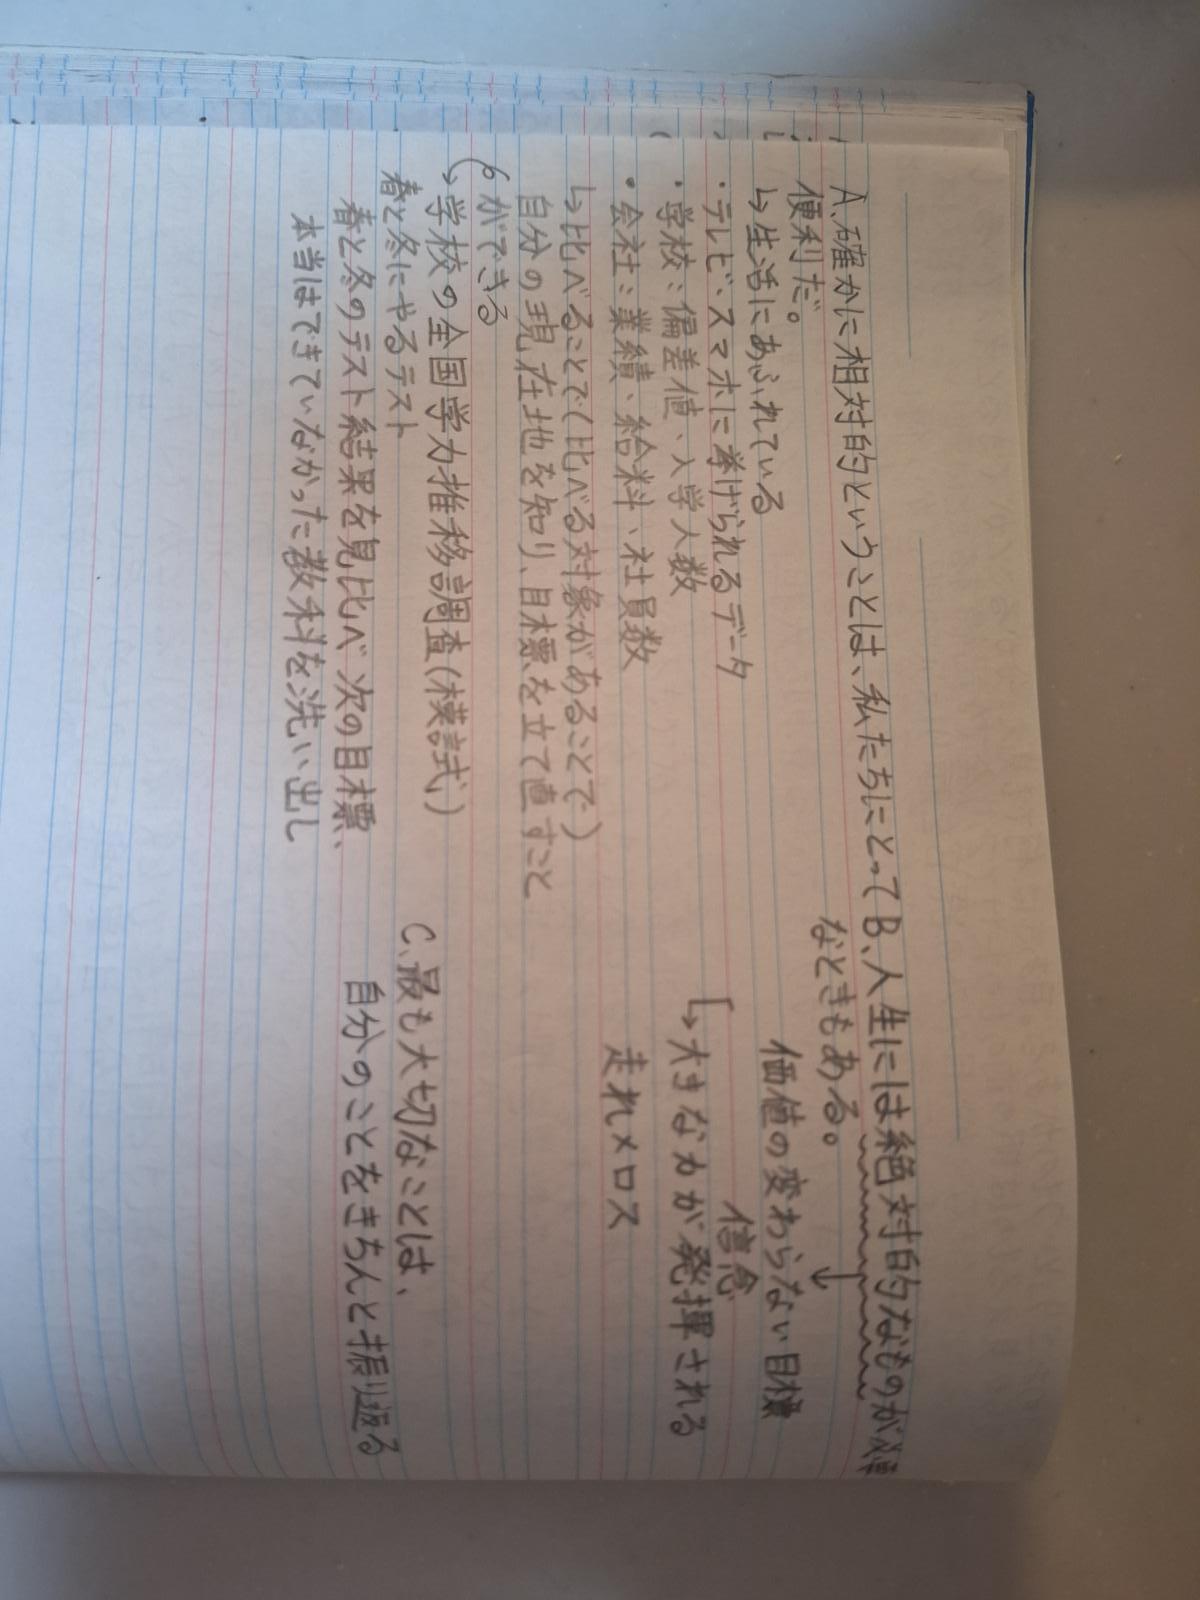 A、確かに相対的ということは、私たちにとって
便利だ。
↳生活にあふれている
・テレビ、スマホに挙げられるデータ
・学校:偏差値、入学人数
・会社:業績、給料、社員数
↳比べることで(比べる対象があることで)
自分の現在地を知り、目標を立て直すこと
ができる
↳学校の全国学力推移調査(模試)
春と冬にやるテスト
春と冬のテスト結果を見比べ 次の目標、
本当はできていなかった教科を洗い出し
B、人生には絶対的なものが必要
なときもある。
↓
価値の変わらない目標
信念
↳大きな力が発揮される
走れメロス
C、最も大切なことは、
自分のことをきちんと振り返る